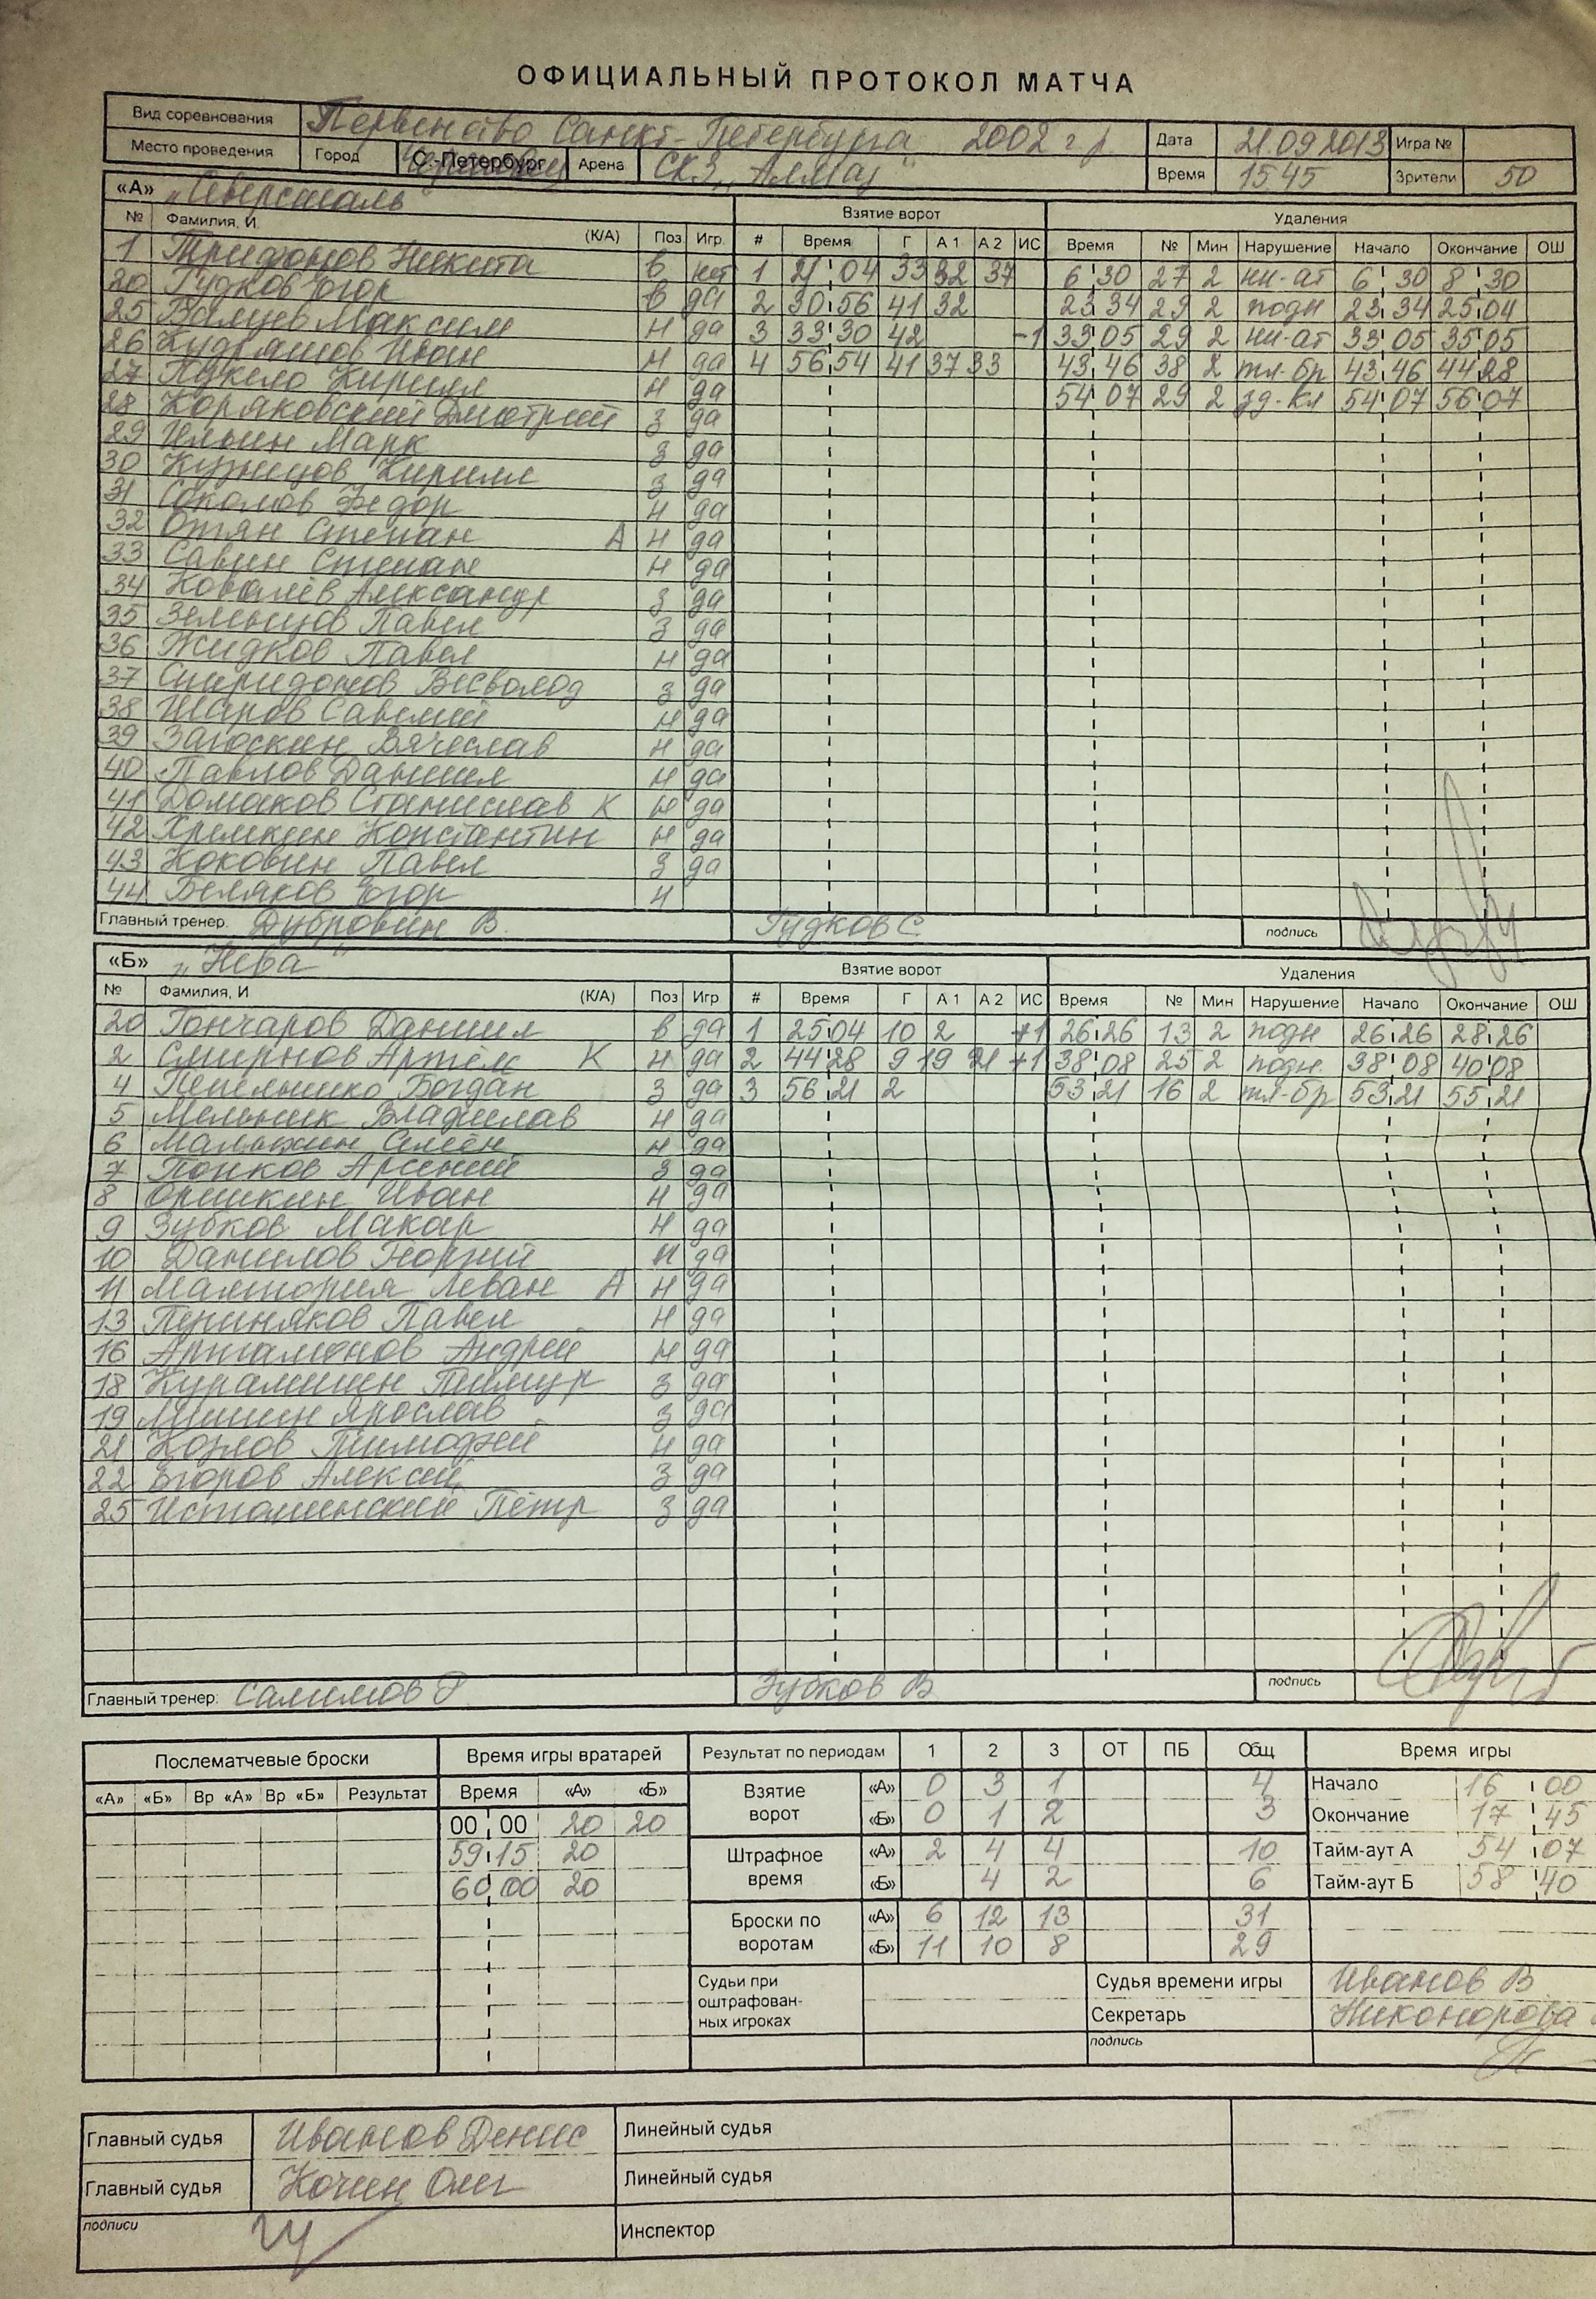 ОФИЦИАЛЬНЫЙ ПРОТОКОЛ МАТЧА
Вид соревнования Первенство Санкт-Петербурга 2002 г.р. Дата 21.09.2013 Игра №
Место проведения Город С.-Петербург Арена СКЗ „Алмаз" Время 15 45 Зрители 50
«А» „Северсталь"
Взятие ворот Удаления
№ Фамилия, И. (К/А) Поз. Игр. # Время Г А 1 А 2 ИС Время № Мин Нарушение Начало Окончание ОШ
1 Трифонов Никита в нет 1 21 04 33 32 37 6 30 27 2 чи-ат 6 30 8 30
20 Гудков Егор в да 2 30 56 41 32 23 34 29 2 подн 23 34 25 04
25 Максим н да 3 33 30 42 -1 33 05 29 2 чи-ат 33 05 35 05
26 Кудряшов Иван н да 4 56 54 41 37 33 43 46 38 2 тл-бр 43 46 44 28
27 Кирилл н да 54 07 29 2 зд-кл 54 07 56 07
28 Коряковский Дмитрий з да
29 Ильин Марк з да
30 Кузнецов Кирилл з да
31 Соколов Федор н да
32 Отян Степан А н да
33 Савин Степан н да
34 Ковалёв Александр з да
35 Зеленцов Павел з да
36 Жидков Павел н да
37 Спиридонов Всеволод з да
38 Шаров Савелий н да
39 Загоскин Вячеслав н да
40 Павлов Даниил н да
41 Домаков Станислав К н да
42 Хремкин Константин н да
43 Коковин Павел з да
44 Беляков Егор н
Главный тренер. Дубровин В. Гудков С. подпись
«Б» „Нева"
Взятие ворот Удаления
№ Фамилия, И (К/А) Поз Игр # Время Г А 1 А 2 ИС Время № Мин Нарушение Начало Окончание ОШ
20 Гончаров Даниил в да 1 25 04 10 2 +1 26 26 13 2 подн 26 26 28 26
2 Смирнов Артём К н да 2 44 28 9 19 21 +1 38 08 25 2 подн. 38 08 40 08
4 Богдан з да 3 56 21 2 53 21 16 2 тл-бр 53 21 55 21
5 Мельник Владислав н да
6 Малыхин Семён н да
7 Попков Арсений з да
8 Оришкин Иван н да
9 Зубков Макар н да
10 Данилов Георгий н да
11 Леван А н да
13 Периняков Павел н да
16 Артамонов Андрей н да
18 Курамшин Тимур з да
19 Мишин Ярослав з да
21 Козлов Тимофей н да
22 Егоров Алексей з да
25 Истоминский Пётр з да
Главный тренер: Салимов Р. Зубков В подпись
Послематчевые броски Время игры вратарей Результат по периодам 1 2 3 ОТ ПБ Общ Время игры
«А» «Б» Вр «А» Вр «Б» Результат Время «А» «Б»
Взятие ворот «А» 0 3 1 4 Начало 16 00
00 00 20 20 «Б» 0 1 2 3 Окончание 17 45
59 15 20 Штрафное время «А» 2 4 4 10 Тайм-аут А 54 07
60 00 20 «Б» 4 2 6 Тайм-аут Б 58 40
Броски по воротам «А» 6 12 13 31
«Б» 11 10 8 29
Судьи при оштрафован-
ных игроках
Судья времени игры Иванов В
Секретарь Никонорова
подпись
Главный судья Иванов Денис Линейный судья
Главный судья Кочин Олег Линейный судья
подписи Инспектор